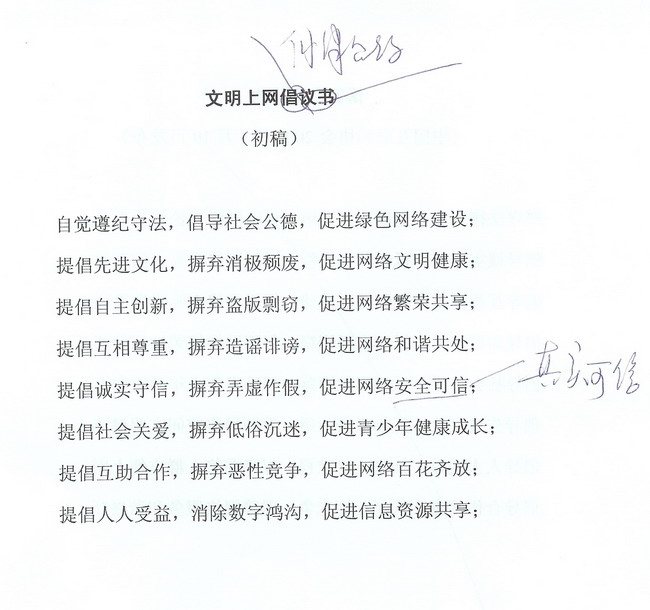 文明上网倡议书
（初稿）
自觉遵纪守法，倡导社会公德，促进绿色网络建设；
提倡先进文化，摒弃消极颓废，促进网络文明健康；
提倡自主创新，摒弃盗版剽窃，促进网络繁荣共享；
提倡互相尊重，摒弃造谣诽谤，促进网络和谐共处；
提倡诚实守信，摒弃弄虚作假，促进网络安全可信；
真实可信
提倡社会关爱，摒弃低俗沉迷，促进青少年健康成长；
提倡互助合作，摒弃恶性竞争，促进网络百花齐放；
提倡人人受益，消除数字鸿沟，促进信息资源共享；